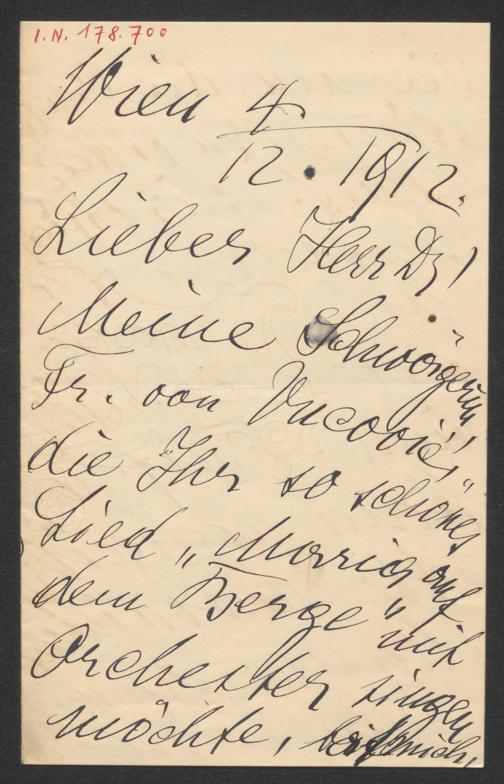 I.N. 178.700
Wien 4.
12. 1912.
Lieber Herr Dr!
Meine Schwägerin
Fr. von Vucović,
die Ihr so schönes
Lied „Maria auf
dem Berge" mit
Orchester singen
möchte, mich,